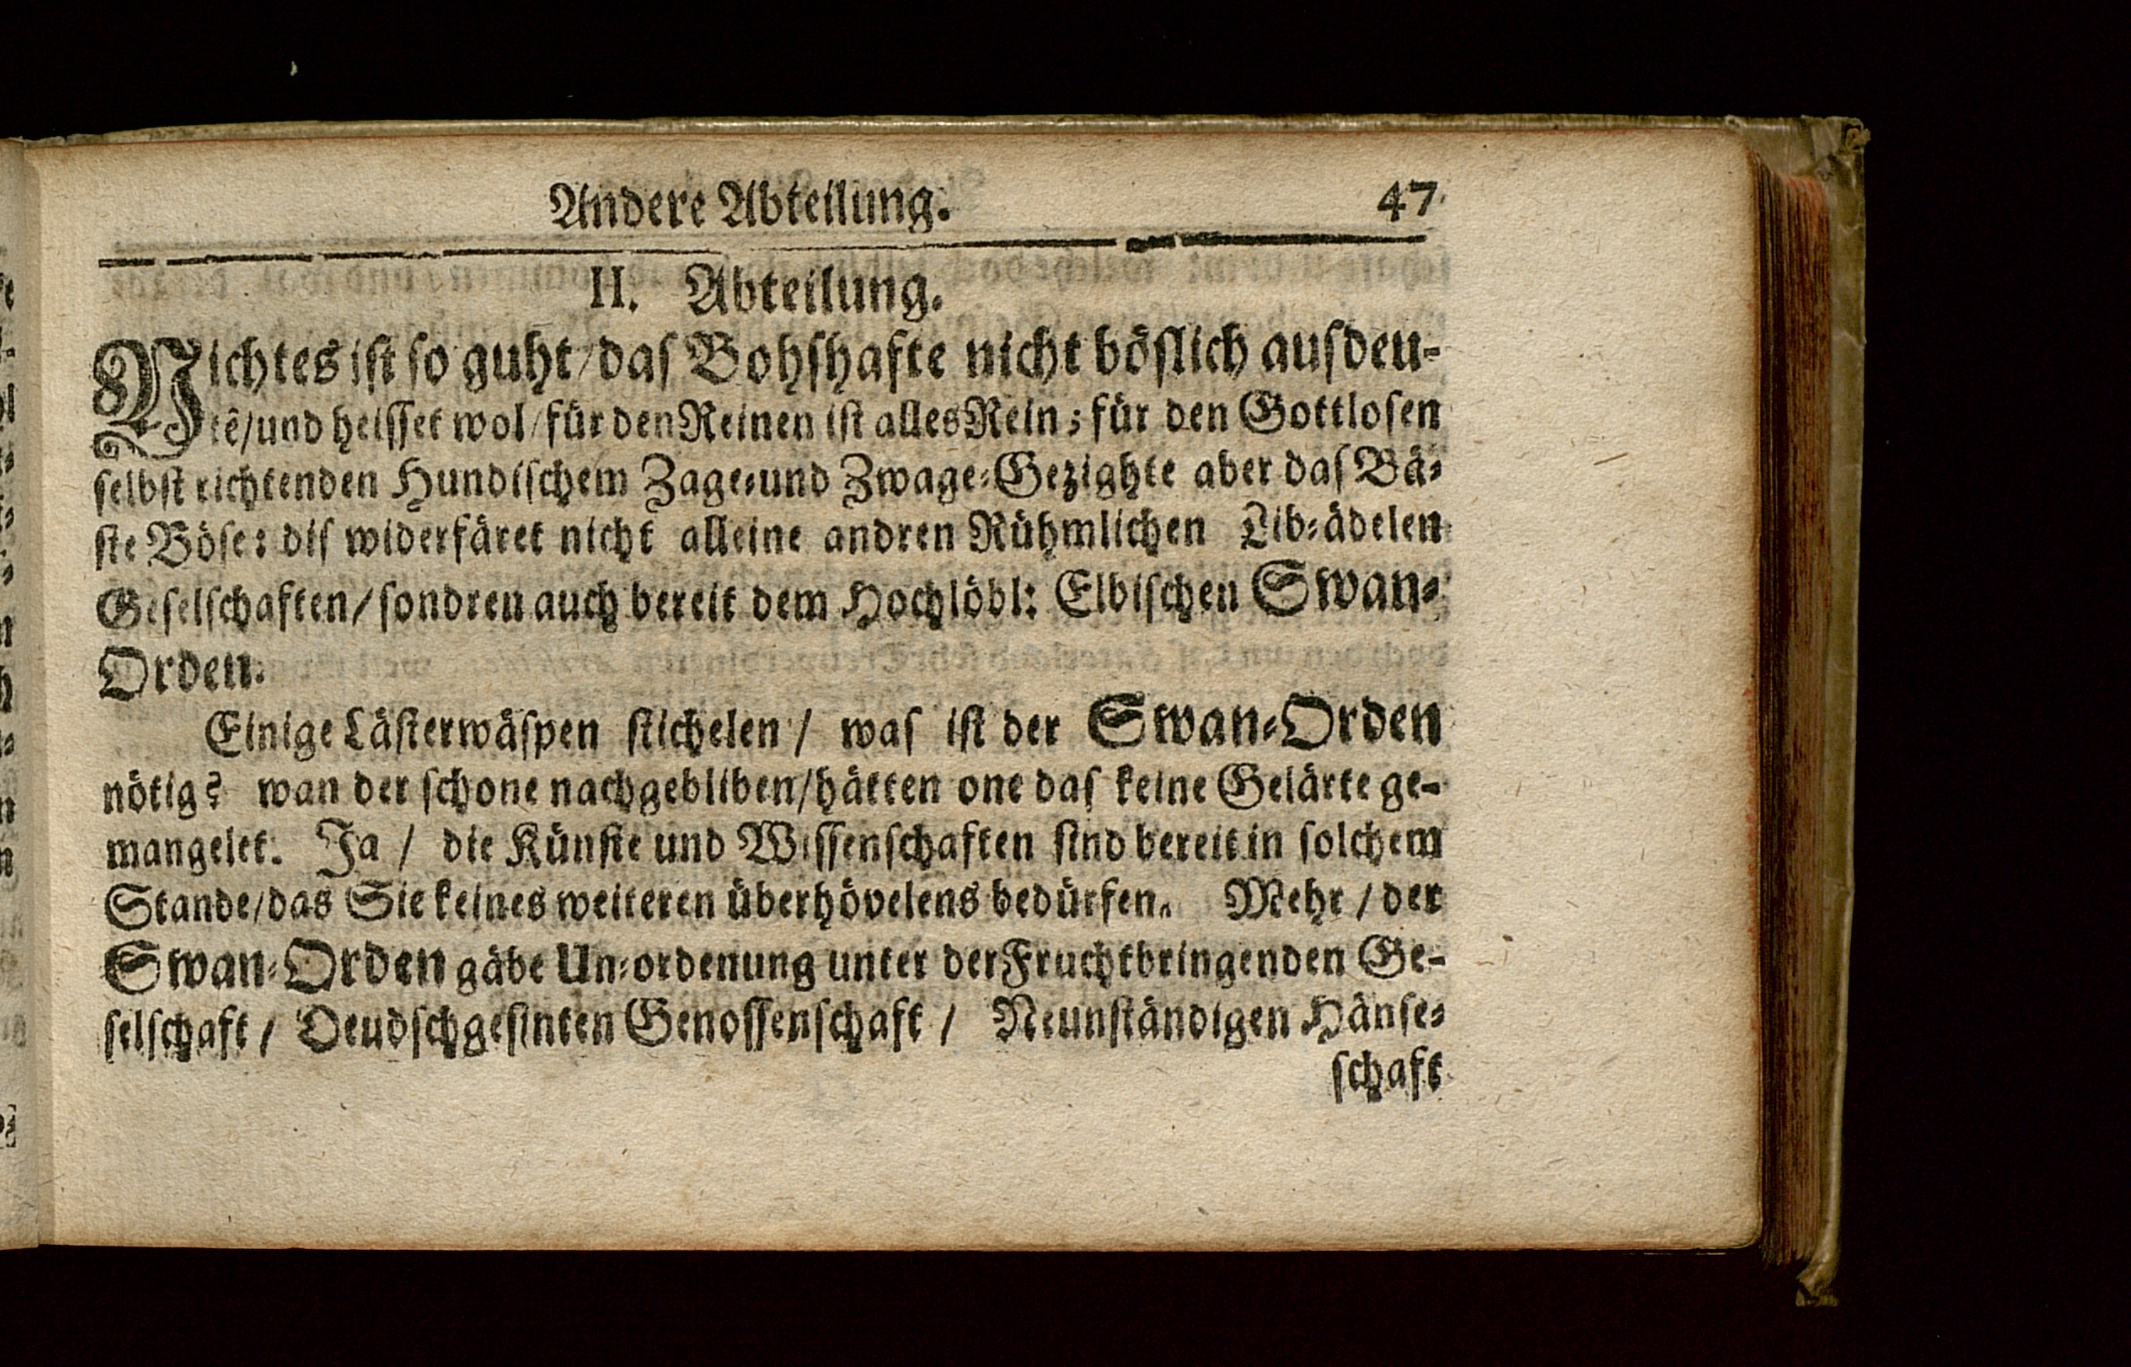 Andere Abteilung. 47
II. Abteilung.
Nichtes iſt ſo guht/daſ Bohſhafte nicht böſlich auſdeu-
tê/und heiſſet wol/für den Reinen iſt alles Rein; für den Gottloſen
ſelbſt richtenden Hundiſchem Zage-und Zwage-Gezighte aber daſ Bä-
ſte Böſe: diſ widerfäret nicht alleine andren Rühmlichen Lib-ädelen
Geſelſchaften/ſondren auch bereit dem Hochlöbl: Elbiſchen Swan-
Orden.
Einige Läſterwäſpen ſtichelen / waſ iſt der Swan-Orden
nötig? wan der ſchone nachgebliben/hätten one daſ keine Gelärte ge-
mangelet. Ja / die Künſte und Wiſſenſchaften ſind bereit in ſolchem
Stande/das Sie keines weiteren überhövelens bedürfen. Mehr / der
Swan-Orden gäbe Un-ordenung unter der Fruchtbringenden Ge-
ſelſchaft / Deudſchgeſinten Genoſſenſchaft / Neunſtändigen Hänſe-
ſchaft